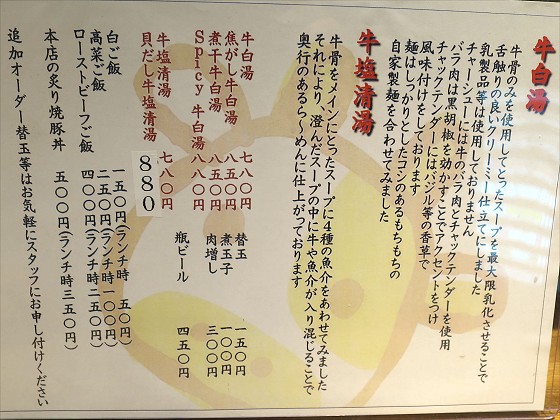 牛白湯
牛骨のみを使用してとったスープを最大限乳化させることで
舌触りの良いクリーミー仕立てにしました
乳製品等は使用しておりません
チャーシューには牛のバラ肉とチャックテンダーを使用
バラ肉は黒胡椒を効かすことでアクセントをつけ
チャックテンダーにはバジル等の香草で
風味付けをしております
麺はしっかりとしたコシのあるもちもちの
自家製麺を合わせてみました
牛塩清湯
牛骨をメインにとったスープに4種の魚介をあわせてみました
それにより、澄んだスープの中に牛や魚介が入り混じることで
奥行のあるら〜めんに仕上がっております
牛白湯 七八〇円
焦がし牛白湯 八五〇円
煮干牛白湯 八五〇円
Spicy 牛白湯 八八〇円
牛塩清湯 七八〇円
貝だし牛塩清湯 880
替玉 一五〇円
煮玉子 一〇〇円
肉増し 三〇〇円
瓶ビール 四五〇円
白ご飯 一五〇円(ランチ時 五〇円)
高菜ご飯 二五〇円(ランチ時一〇〇円)
ローストビーフご飯 四〇〇円(ランチ時二五〇円)
本店の炙り焼豚丼 五〇〇円(ランチ時三五〇円)
追加オーダー替玉等はお気軽にスタッフにお申し付けください